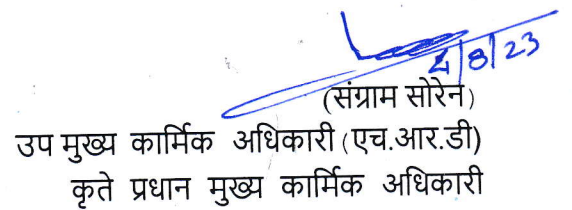 4/8/23
(संग्राम सोरेन)
उप मुख्य कार्मिक अधिकारी (एच.आर.डी)
कृते प्रधान मुख्य कार्मिक अधिकारी